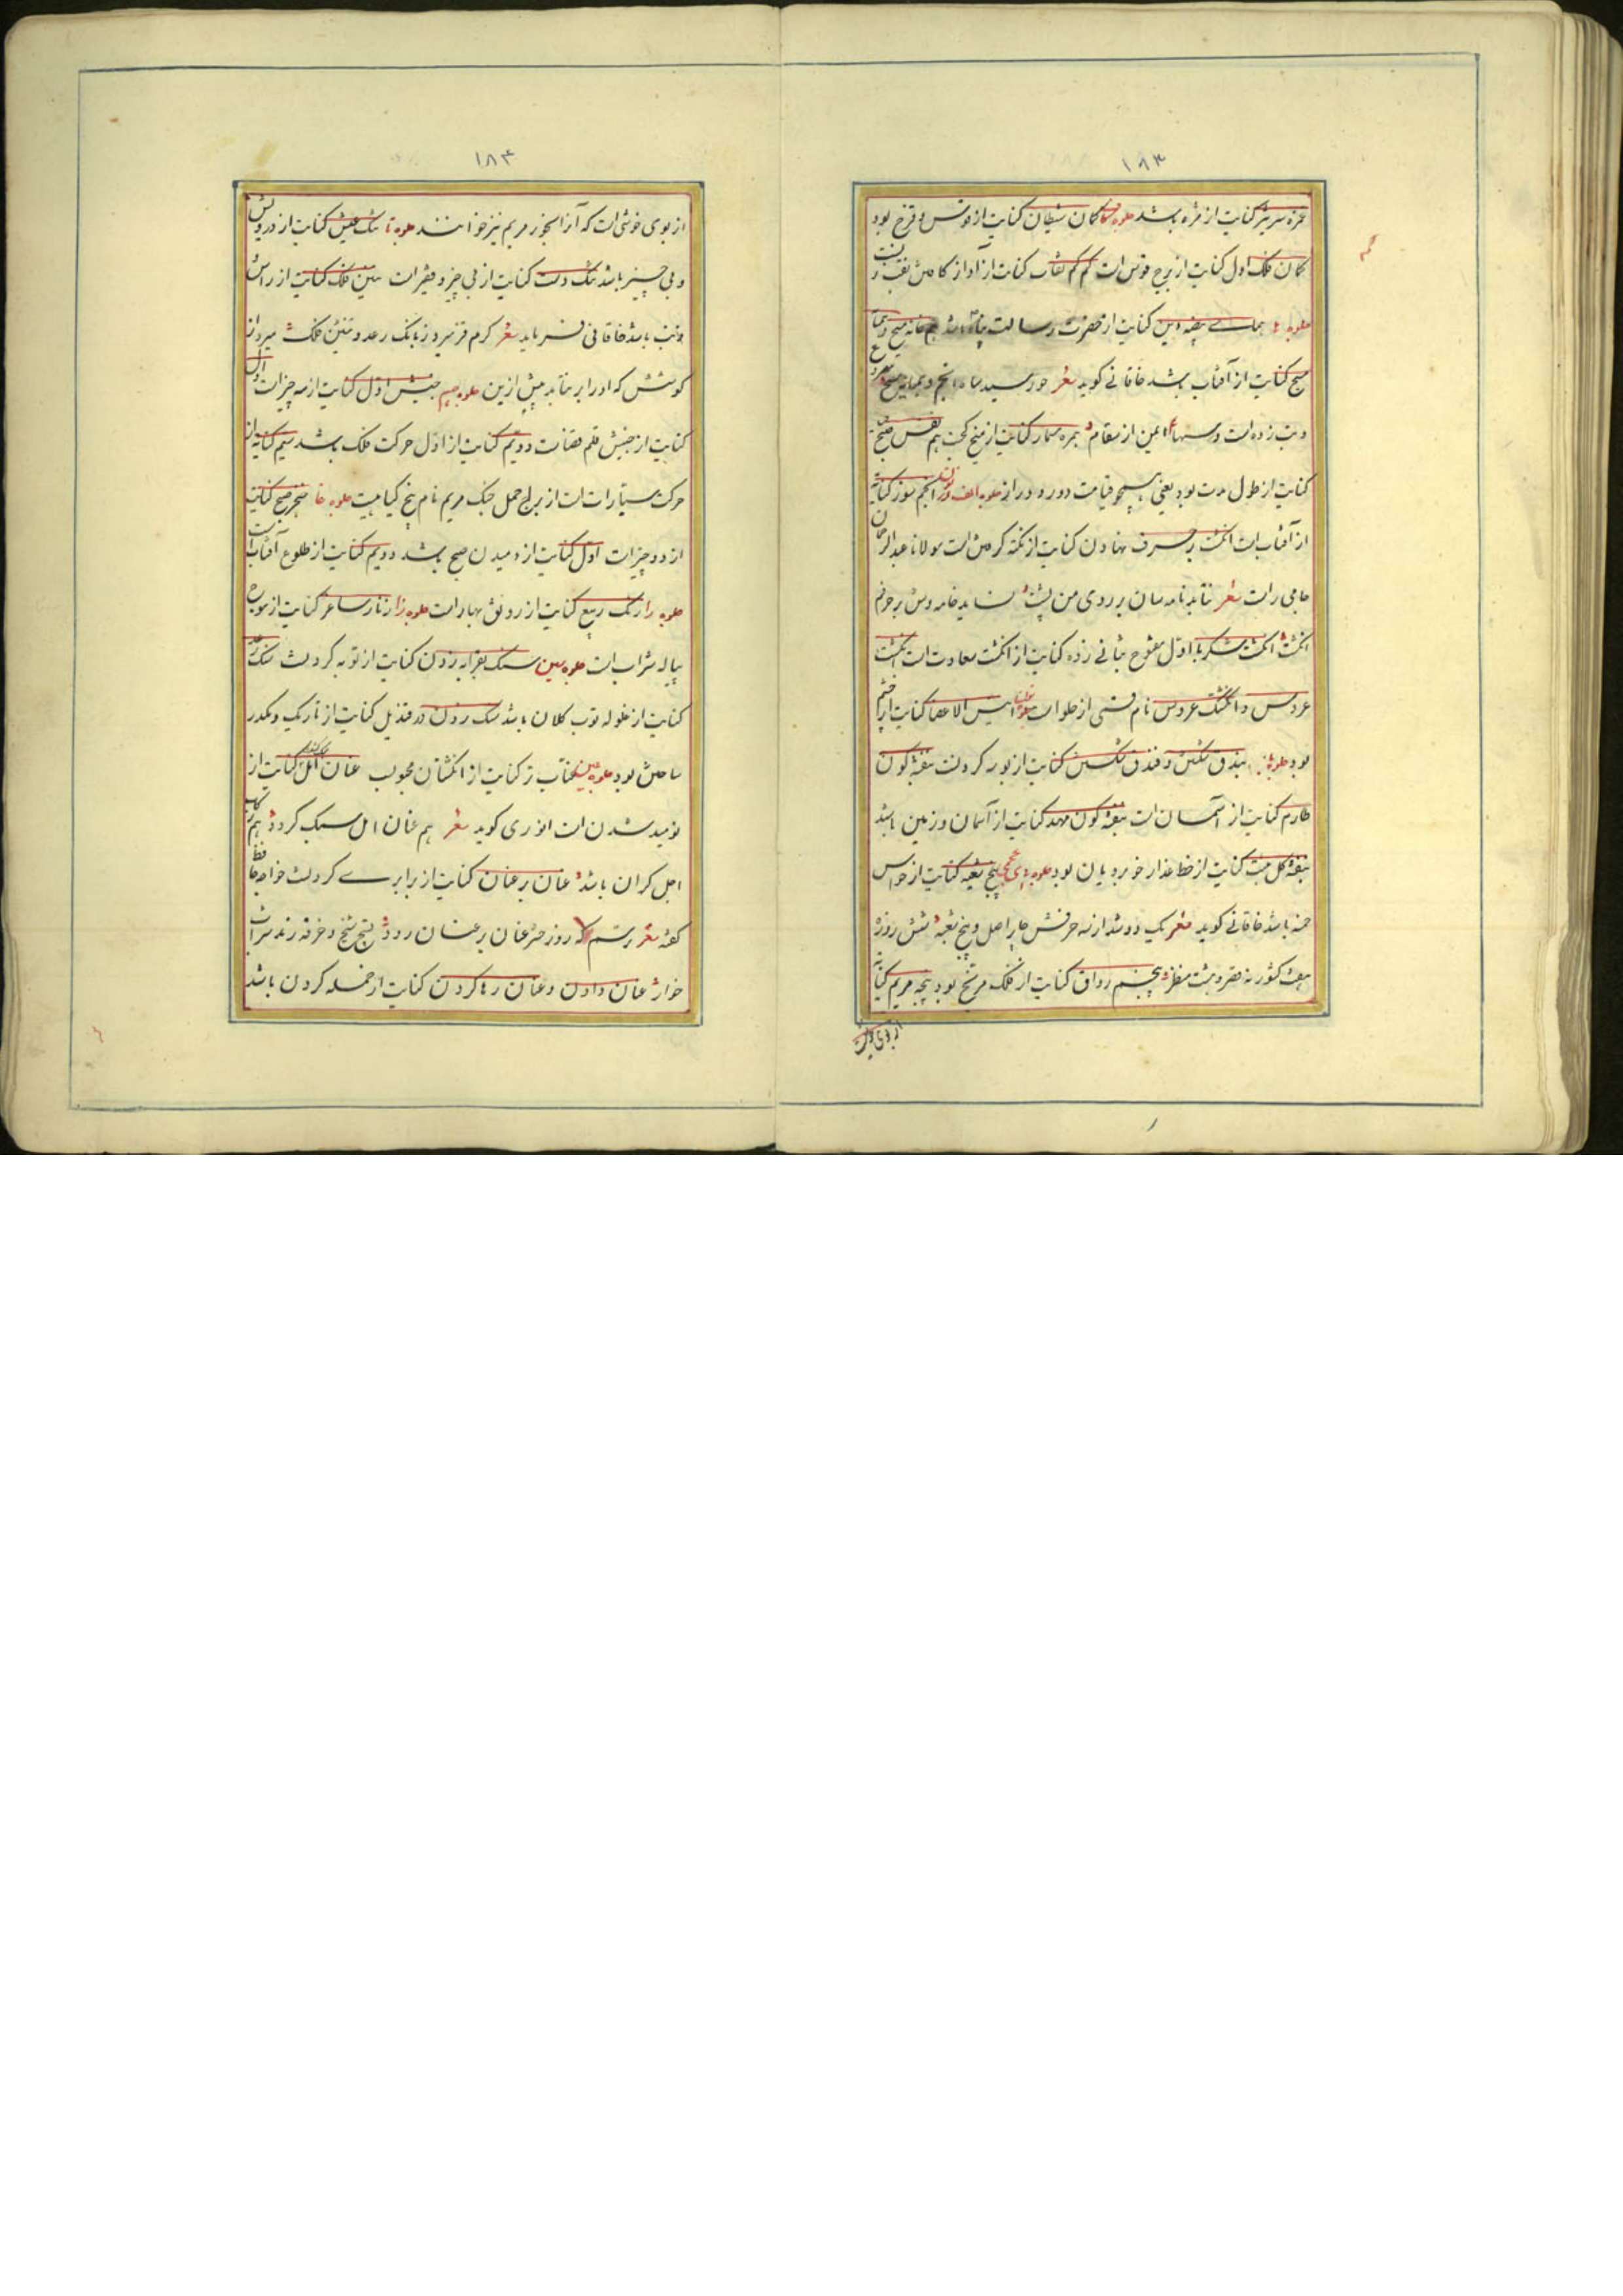 ۱۸۳
غمزه سرتیز کنایت از مژه باشد جلوه کاف کمان شیطان کنایت از قوس و قزح بود
کمان فلک اول کنایت از برج قوس است کم کم نقاب کنایت از آواز کافتن نقب
جلوه ها همای بیضه دین کنایت از حضرت رسالت پناه باشد هم خانه مسیح و
مسیح کنایت از آفتاب باشد خاقانی کوید شعر خورشید شاه انجم و همخانه مسیح
و تب زده است و ایمن از سقام بمره مسمار کنایت از میخ کجت هم نفس صبح
کنایت از طول مدت بود یعنی همچو قیامت دور و دراز جلوه الف انجم سوز کنایه
از آفتاب است انکشت بر حرف نهادن کنایت از نکته کرفتن است مولانا عبدالرحمان
جامی راست شعر نتابد نامه سان بر روی من پشت نساید خامه وش بر حرفم
انکشت انکشت شکر با اول مفتوح بثانی زده کنایت از انکشت سعادت است انکشت
عروس و انکشتک عروس نام قسمی از حلوا است انیس الاعضا کنایت از چشم
بود جلوه با بندق شکستن و فندق شکستن کنایت از بوسه کردنست بنفشه کون
طارم کنایت از آسمان است بنفشه کون مهد کنایت از آسمان و زمین باشد
بنفشه کل کنایت از خط عذار خوبرویان بود جلوه پای عجمی پنج شعبه کنایت از حواس
خمسه باشد خاقانی کوید شعر یک دو شد از سه حرفش چار اصل و پنج شعبه شش روزه
هفت کشور نه قصر و هشت منظر پنجم رواق کنایت از فلک مریخ بود پنجه مریم کنایه
از بوی خوش
۱۸۳
از بوی خوشی است که آنرا بخور مریم نیز خوانند جلوه تا تنک عیش کنایت از درویش
و بی چیز باشد تنک دست کنایت از بی چیز و فقیر است تنین فلک کنایت از راس
و ذنب باشد خاقانی فرماید شعر کرم قز میرد ز بانک رعد و تنین فلک میرد از
کوشش که او را بر نتابد بیش ازین جلوه جیم جنبش اول کنایت از سه چیز است اول
کنایت از جنبش قلم قضاست دویم کنایت از اول حرکت فلک باشد سیم کنایه از
حرکت سیارات است از برج حمل چنک مریم نام پنج کیاهیست جلوه خا خنجر صبح کنایت
از دو چیز است اول کنایت از دمیدن صبح باشد دویم کنایت از طلوع آفتاب است
جلوه را رنک ربیع کنایت از رونق بهار است جلوه زا زنار ساغر کنایت از موجه
پیاله شراب است جلوه سین سنک بقرابه زدن کنایت از توبه کردنست سنک رعد
کنایت از غلوله توب کلان باشد سنک زدن در قندیل کنایت از تاریک و مکدر
ساختن بود جلوه عین عناب تر کنایت از انکشتان محبوب عنان امل کنایت از
نومید شدن است انوری کوید شعر هم عنان امل سبک کردد هم رکاب
اجل کران باشد عنان بر عنان کنایت از برابری کردنست خواجه حافظ
کفته شعر رسم که روز حشر عنان بر عنان رود تسبیح شیخ و خرقه رند شراب
خوار عنان دادن و عنان رها کردن کنایت از حمله کردن باشد